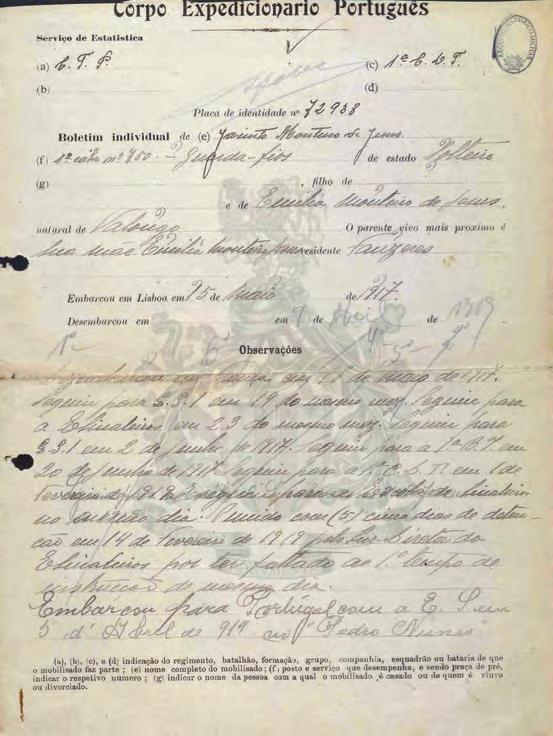 Corpo Expedicionario Português
Serviço de Estatistica
(a) C. T. P. (c) 1ª C. D. T.
(b) (d)
Placa de identidade nº 72938
Boletim individual de (e) Jacinto Monteiro de Jesus
(f) 1º cabo nº 750 - Guarda-fios de estado Solteiro
(g) , filho de
e de Emilia Monteiro de Jesus,
natural de Valongo. O parente vivo mais proximo é
Sua mãe Emilia Monteiro residente
Embarcou em Lisboa em 25 de Maio de 1917.
Desembarcou em em 9 de Abril de 1919
Observações
em 18 de Maio de 1917.
Seguiu para S.S.1 em 19 do mesmo mez. Seguiu para
a E. Sinaleiros em 23 do mesmo mez. Seguiu para
S.S.1 em 2 de Junho de 1917. Seguiu para a 1ª B.T. em
20 de Junho de 1917. Seguiu para a 1ª C.D.T. em 1 de
Fevereiro de 1919. E seguiu para a Escola de Sinaleiros
no mesmo dia. Punido com (5) cinco dias de deten-
ção em 14 de Fevereiro de 1919 pelo Director da
E. Sinaleiros por ter faltado ao 1.º tempo de
instrucção do mesmo dia.
Embarcou para Portugal com a E. S. em
5 d'Abril de 919 no "Pedro Nunes"
(a), (b), (c), e (d) indicação do regimento, batalhão, formação, grupo, companhia, esquadrão ou bataria de que
o mobilisado faz parte ; (e) nome completo do mobilisado; (f) posto e serviço que desempenha, e sendo praça de pré,
indicar o respetivo numero ; (g) indicar o nome da pessoa com a qual o mobilisado é casado ou de quem é viuvo
ou divorciado.